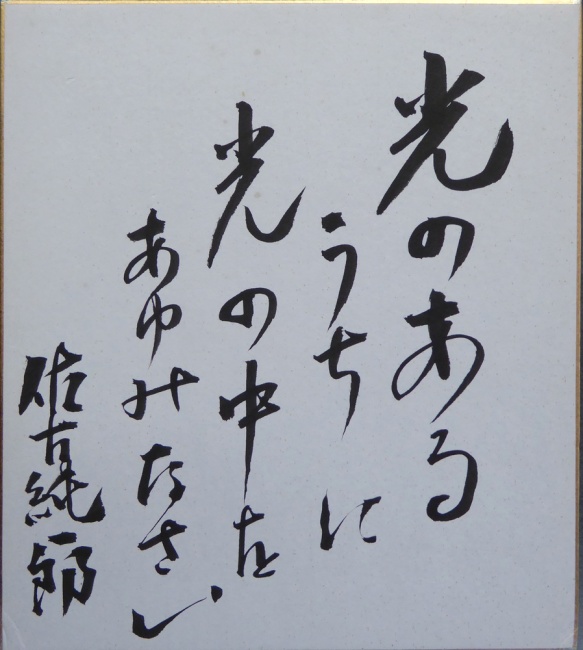 光のある
うちに
光の中を
あゆみなさい
佐古純一郎